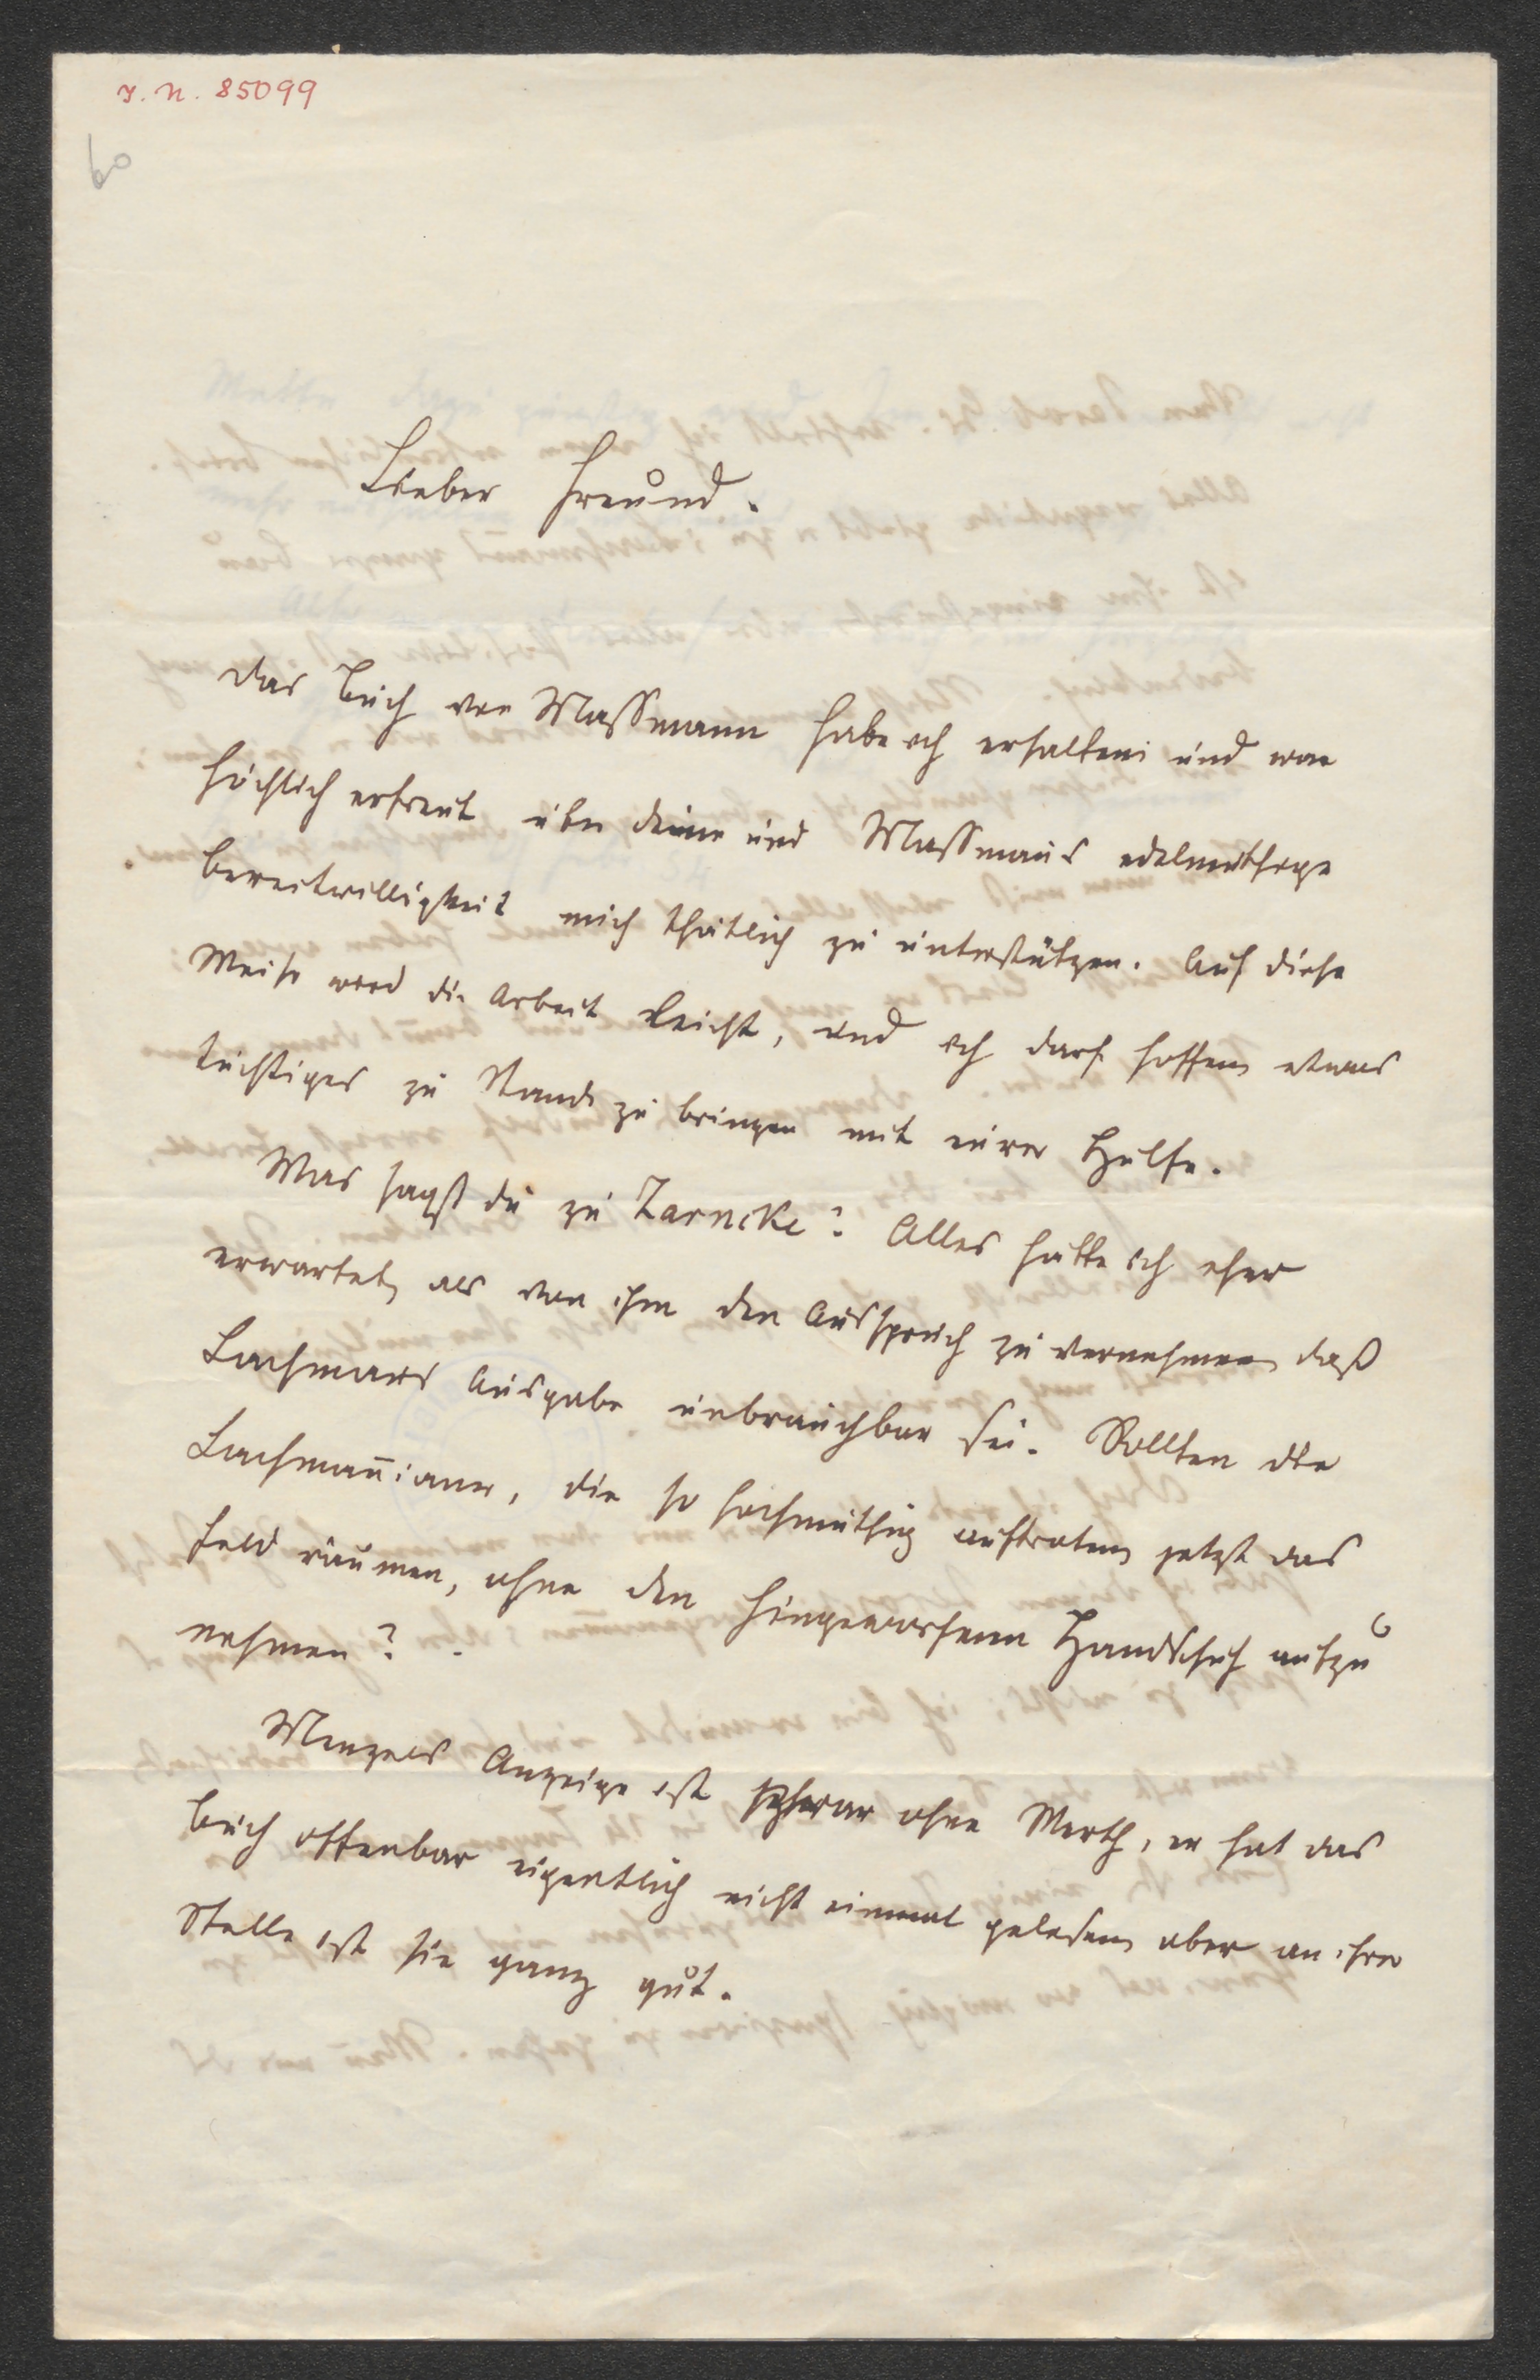 I. N. 85099
60
Lieber Freund.
das Buch von Massmann habe ich erhalten und war
höchlich erfreut über deine und Massmans edelmuthige
Bereitwilligkeit mich thätlich zu unterstützen. Auf diese
Weise wird die Arbeit leicht, und ich darf hoffen etwas
tüchtiges zu Stande zu bringen mit eurer Hülfe.
Was sagst du zu Zarncke? Alles hätte ich eher
erwartet, als von ihm den Ausspruch zu vernehmen daß
Lachmans Ausgabe unbrauchbar sei. Sollten die
Lachmañianer, die so hochmüthig auftraten jetzt das
Feld räumen, ohne den hingeworfenen Handschuh aufzu
nehmen? -
Menzels Anzeige ist zwar ohne Werth, er hat das
Buch offenbar eigentlich nicht einmal gelesen aber an ihrer
Stelle ist sie ganz gut.